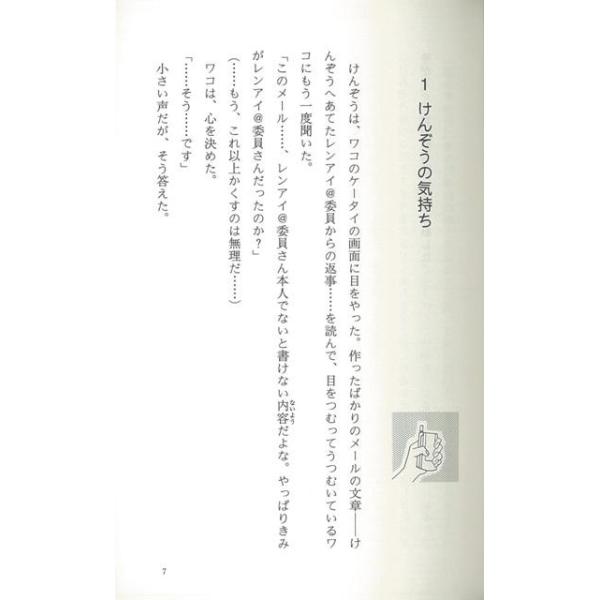 1 けんぞうの気持ち
けんぞうは、ワコのケータイの画面に目をやった。作ったばかりのメールの文章――け
んぞうへあてたレンアイ@委員からの返事……を読んで、目をつむってうつむいているワ
コにもう一度聞いた。
「このメール……、レンアイ@委員さん本人でないと書けない内容だよな。やっぱりきみ
ないよう
がレンアイ@委員さんだったのか?」
(……もう、これ以上かくすのは無理だ……)
ワコは、心を決めた。
「……そう……です」
小さい声だが、そう答えた。
7